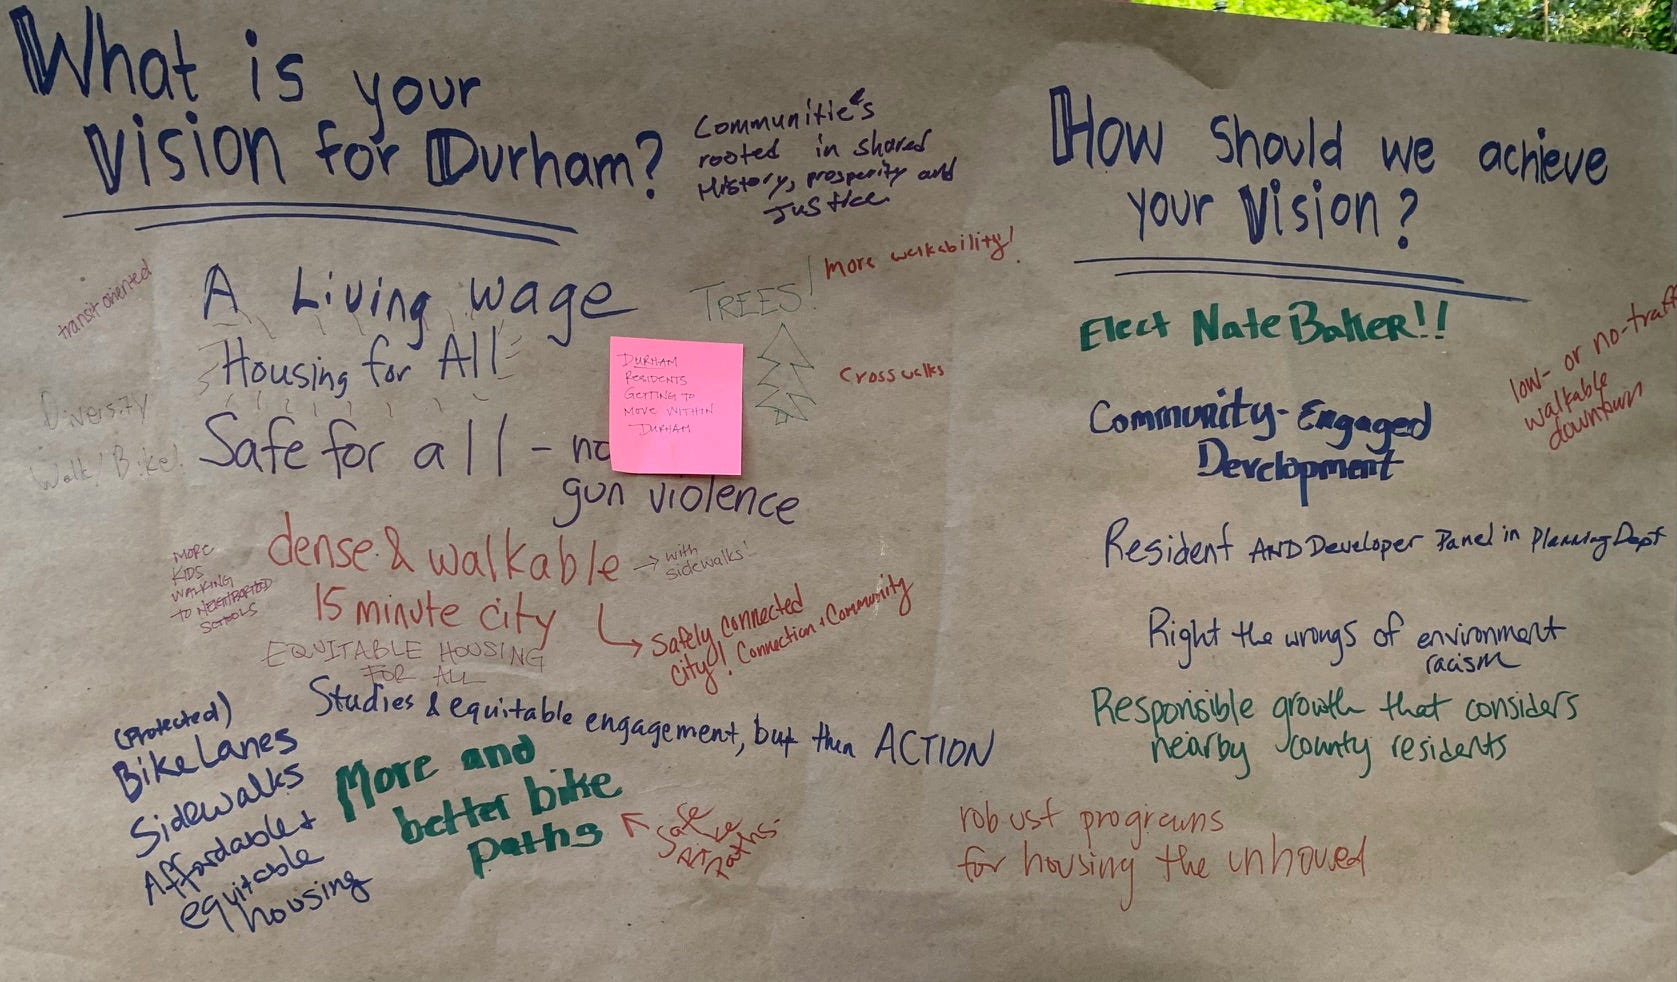 What is your
Vision for Durham?
Communitie's
rooted in shared
History, prosperity and
Justice
transit oriented
A Living wage
Housing for All
Safe for all - no
gun violence
Diversity
Walk/Bike!
TREES!
More walkability!
Crosswalks
DURHAM
RESIDENTS
GETTING TO
MOVE WITHIN
DURHAM
dense & walkable
→ with
sidewalks!
15 minute city
Safely connected
city! Connection + Community
MORE
KIDS
WALKING
TO NEIGHBORHOOD
SCHOOLS
EQUITABLE HOUSING
FOR ALL
Studies & equitable engagement, but then ACTION
(Protected)
Bike Lanes
Sidewalks
Affordable +
equitable
housing
More and
better bike
paths
Safe
Paths.
How should we achieve
your Vision?
Elect Nate Baker!!
low- or no-traff
walkable
downtown
Community-Engaged
Development
Resident AND Developer Panel in Planning Dept
Right the wrongs of environment
racism
Responsible growth that considers
nearby county residents
robust programs
for housing the unhoused